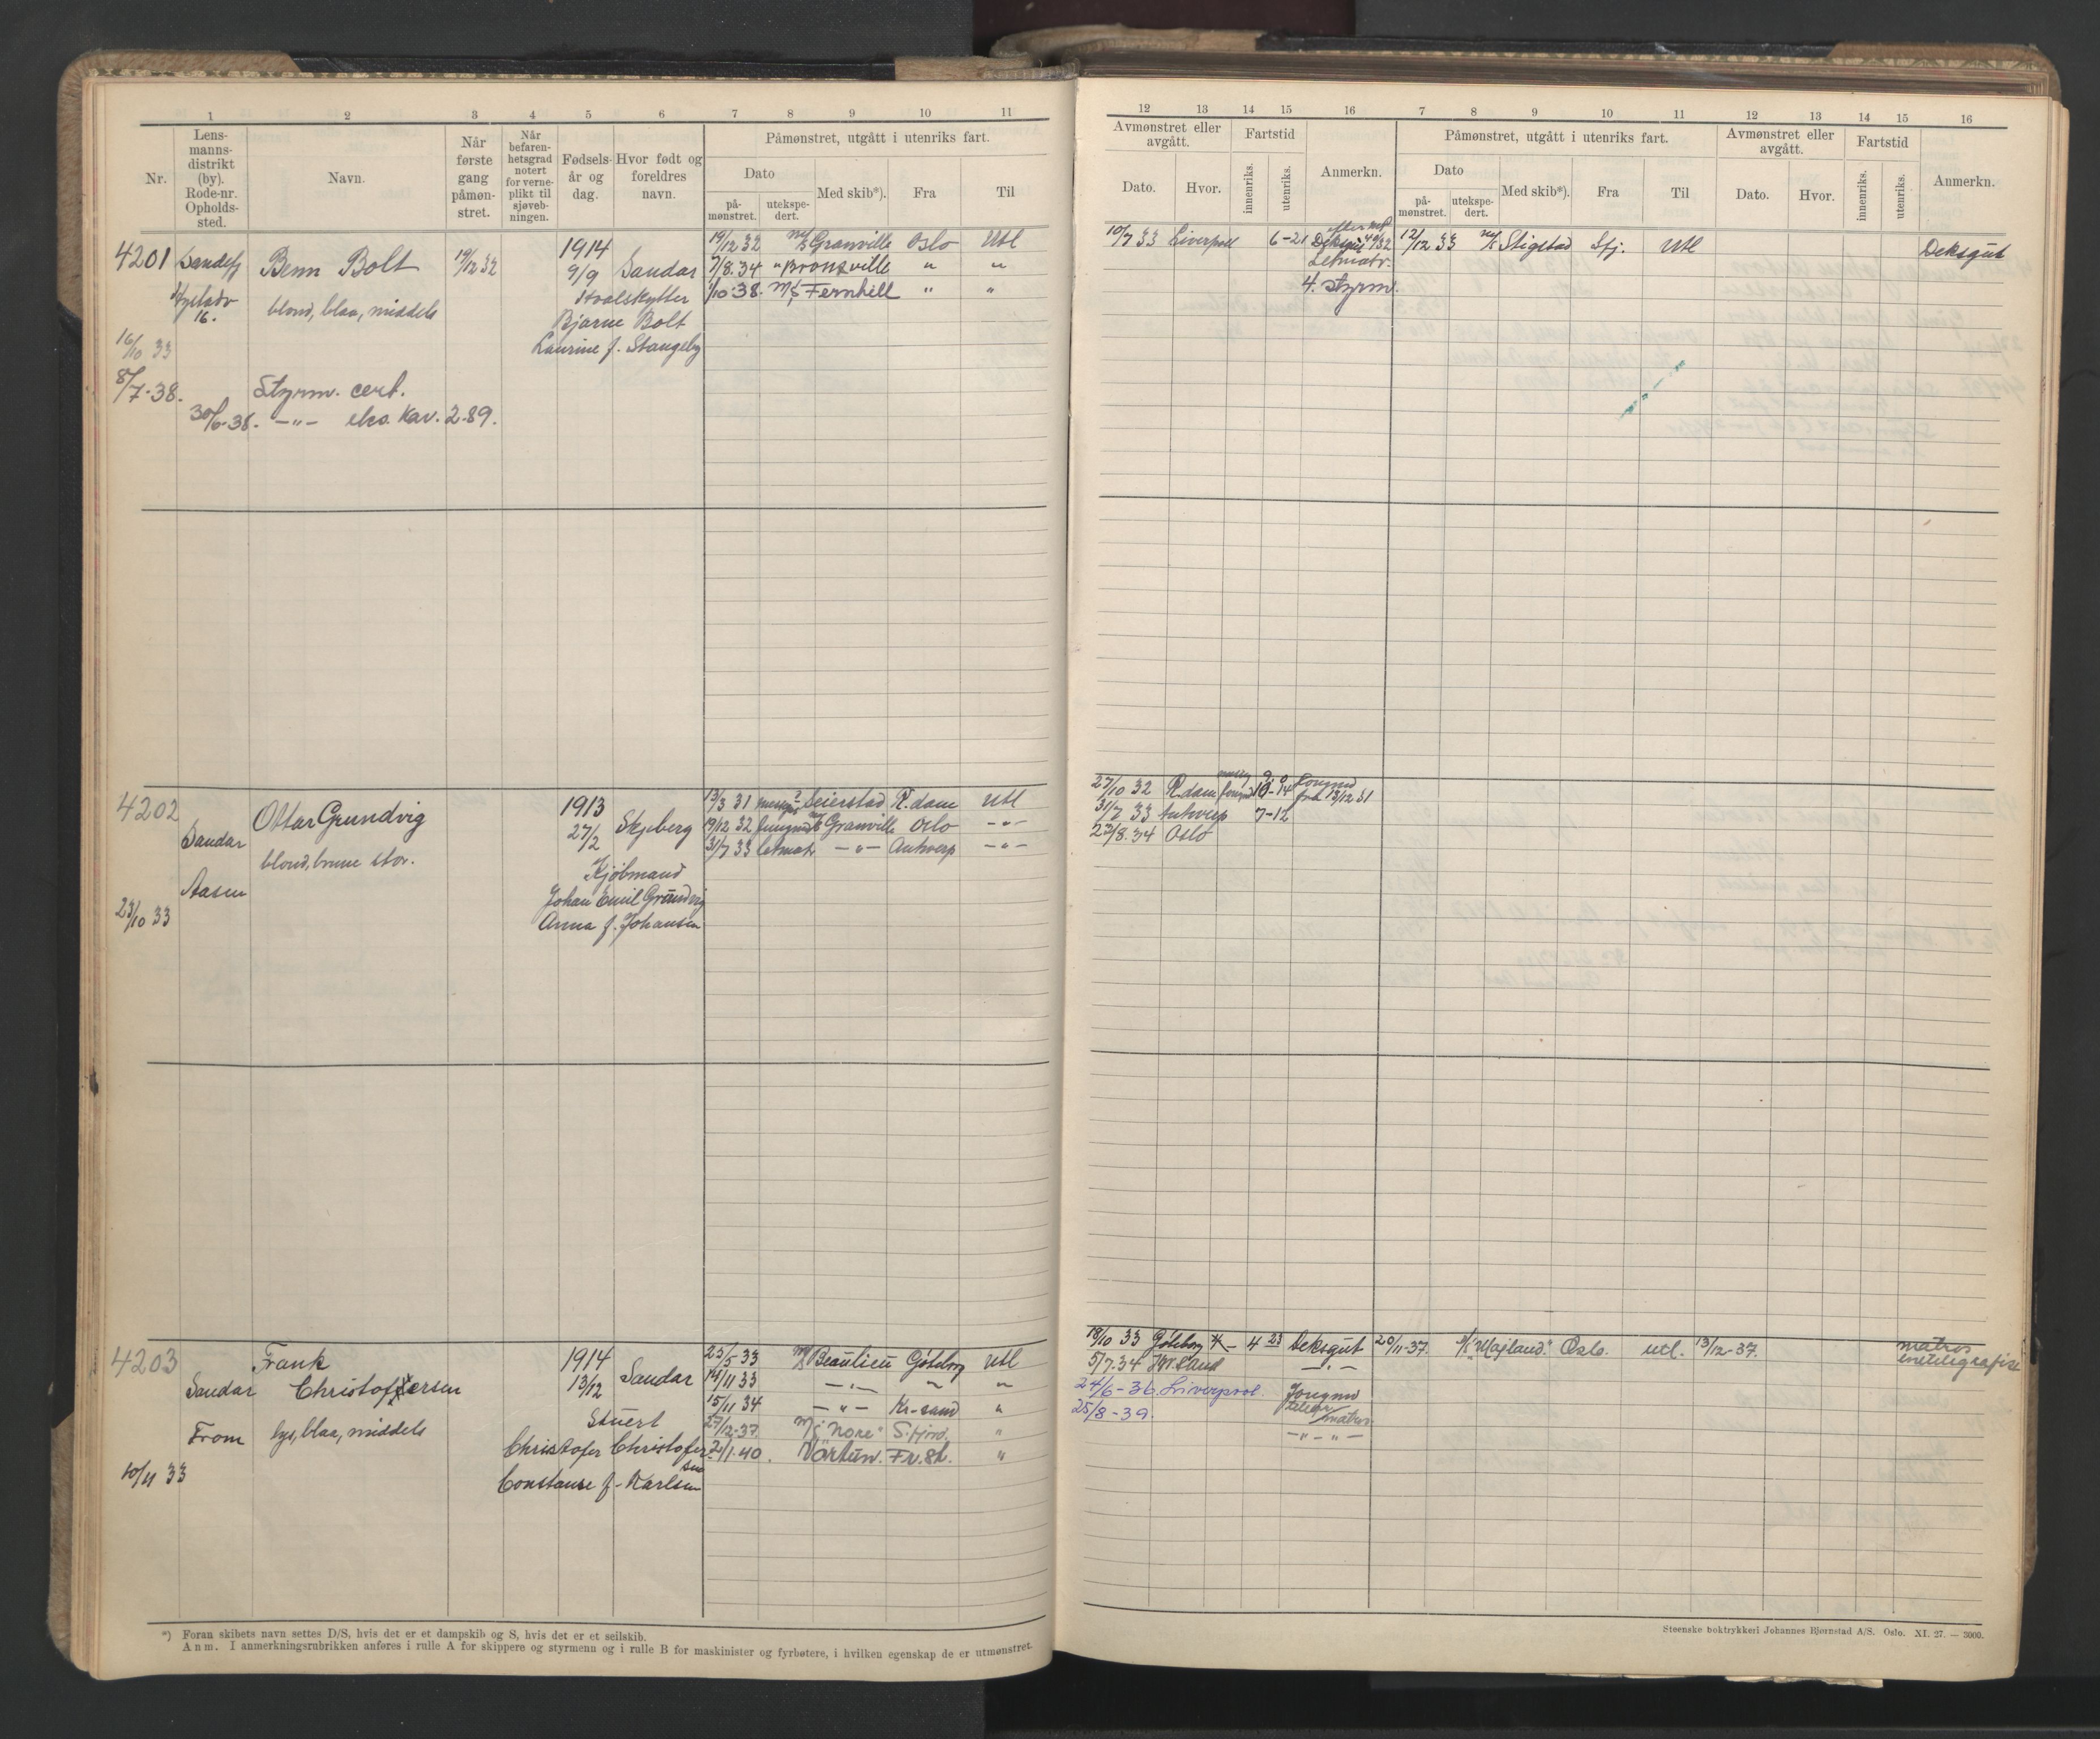 1 2 3 4 5 6 7 8 9 10 11
Nr.
Lens-
manns-
distrikt
(by).
Rode-nr.
Opholds-
sted.
Navn.
Når
første
gang
påmøn-
stret.
Når
befaren-
hetsgrad
notert
for verne-
plikt til
sjøveb-
ningen.
Fødsels-
år og
dag.
Hvor født og
foreldres
navn.
Påmønstret, utgått i utenriks fart.
Dato
på-
mønstret.
utekspe-
dert.
Med skib*).
Fra
Til
4201 Sandefj Benn Bolt 19/12 32 1914 19/12 32 M/S Granville Oslo Utl
9/9 Sandar 7/8.34 " Bronxville " "
16. blond, blaa, middels Hvalskytter 1/10-38. M/S Fernhill " "
Bjarne Bolt
16/10 33 Laurine f. Stangeby
8/7-38. Styrm. cert.
30/6-38. -"- eks. kar. 2.89.
4202 Ottar Grundvig 1913 13/3 31 Seierstad R.dam Utl
Sandar 27/2 Skjeberg 19/12 32 M/S Granville Oslo -"-
blond, brune stor. 31/7 33 Letmatr -"- Antwerp -"-
Kjöbmand
Aasen Johan Emil Grundvig
23/10 33 Anna f. Johansen
4203 Frank 1914 23/5 33 M/S Beaulieu Göteborg Utl
Sandar Christoffersen 13/12 Sandar 14/11 33 -"- " "
15/11 34 -"- Kr-sand "
From lys, blaa, middels Stuert 27/12-37 M/S "Nore" S.fjord. "
Christofer Christofer- 2/1-40. Vartun. Fr.st. "
sen
10/11 33 Constanse f. Karlsen
*) Foran skibets navn settes D/S, hvis det er et dampskib og S, hvis det er et seilskib.
Anm. I anmerkningsrubrikken anføres i rulle A for skippere og styrmenn og i rulle B for maskinister og fyrbøtere, i hvilken egenskap de er utmønstret.
12 13 14 15 16 7 8 9 10 11 12 13 14 15 16
Avmønstret eller
avgått.
Dato.
Hvor.
Fartstid
innenriks.
utenriks.
Anmerkn.
Påmønstret, utgått i utenriks fart.
Dato
på-
mønstret.
utekspe-
dert.
Med skib*).
Fra
Til
Avmønstret eller
avgått.
Dato.
Hvor.
Fartstid
innenriks.
utenriks.
Anmerkn.
10/7 33 Liverpool 6-21 Deksgut 12/12 33 M/S Stigstad Sfj. Utl Deksgut
Letmatr.
4. styrm.
27/10 32 R.dam Jungmd
fra 13/12 31
31/7 33 Antwerp 7-12
23/8.34 Oslo
18/10 33 Göteborg 4 23 Deksgut 20/11-37. "Majland." Oslo. utl. 13/12-37. matros
m/telegrafist
5/7.34 Kr.sand -"-
24/6-36. Liverpool. Jungmd
25/8-39. matros
-"-"-
Steenske boktrykkeri Johannes Bjørnstad A/S. Oslo. XI. 27. — 3000.